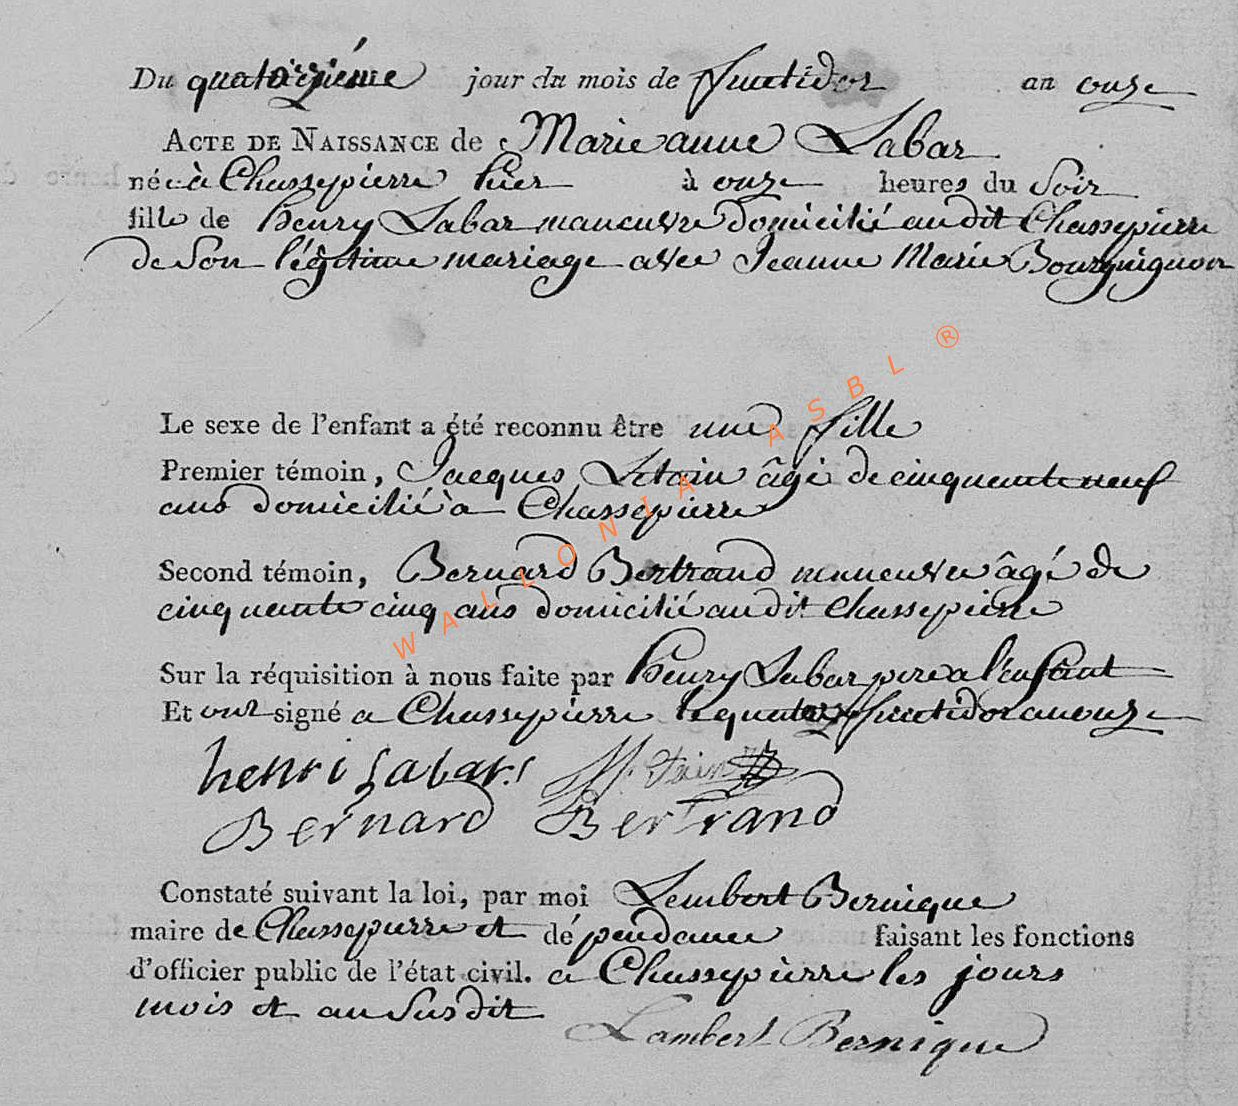 Du quatorziéme jour du mois de fructidor an onze
ACTE DE NAISSANCE de Marie anne Labar
née à Chassepierre hier à onze heures du Soir
fille de henry Labar maneuvre domicilié audit Chassepierre
de Son légitime mariage avec Jeanne Marie Bourguignon
Le sexe de l'enfant a été reconnu être une fille
Premier témoin, Jacques Letain âgé de cinquante neuf
ans domicilié a Chassepierre
Second témoin, Bernard Bertrand maneuvre âgé de
cinquante cinq ans domicilié audit Chassepierre
Sur la réquisition à nous faite par henry Labar pere a l'enfant
Et ont signé a Chassepierre le quatorze fructidor an onze
henri Labar
Bernard Bertrand
Constaté suivant la loi, par moi Lembert Bernique
maire de Chassepierre et dépendance faisant les fonctions
d'officier public de l'état civil. a Chassepierre les jours
mois et an Susdit
Lambert Bernique
WALLONIA ASBL ®